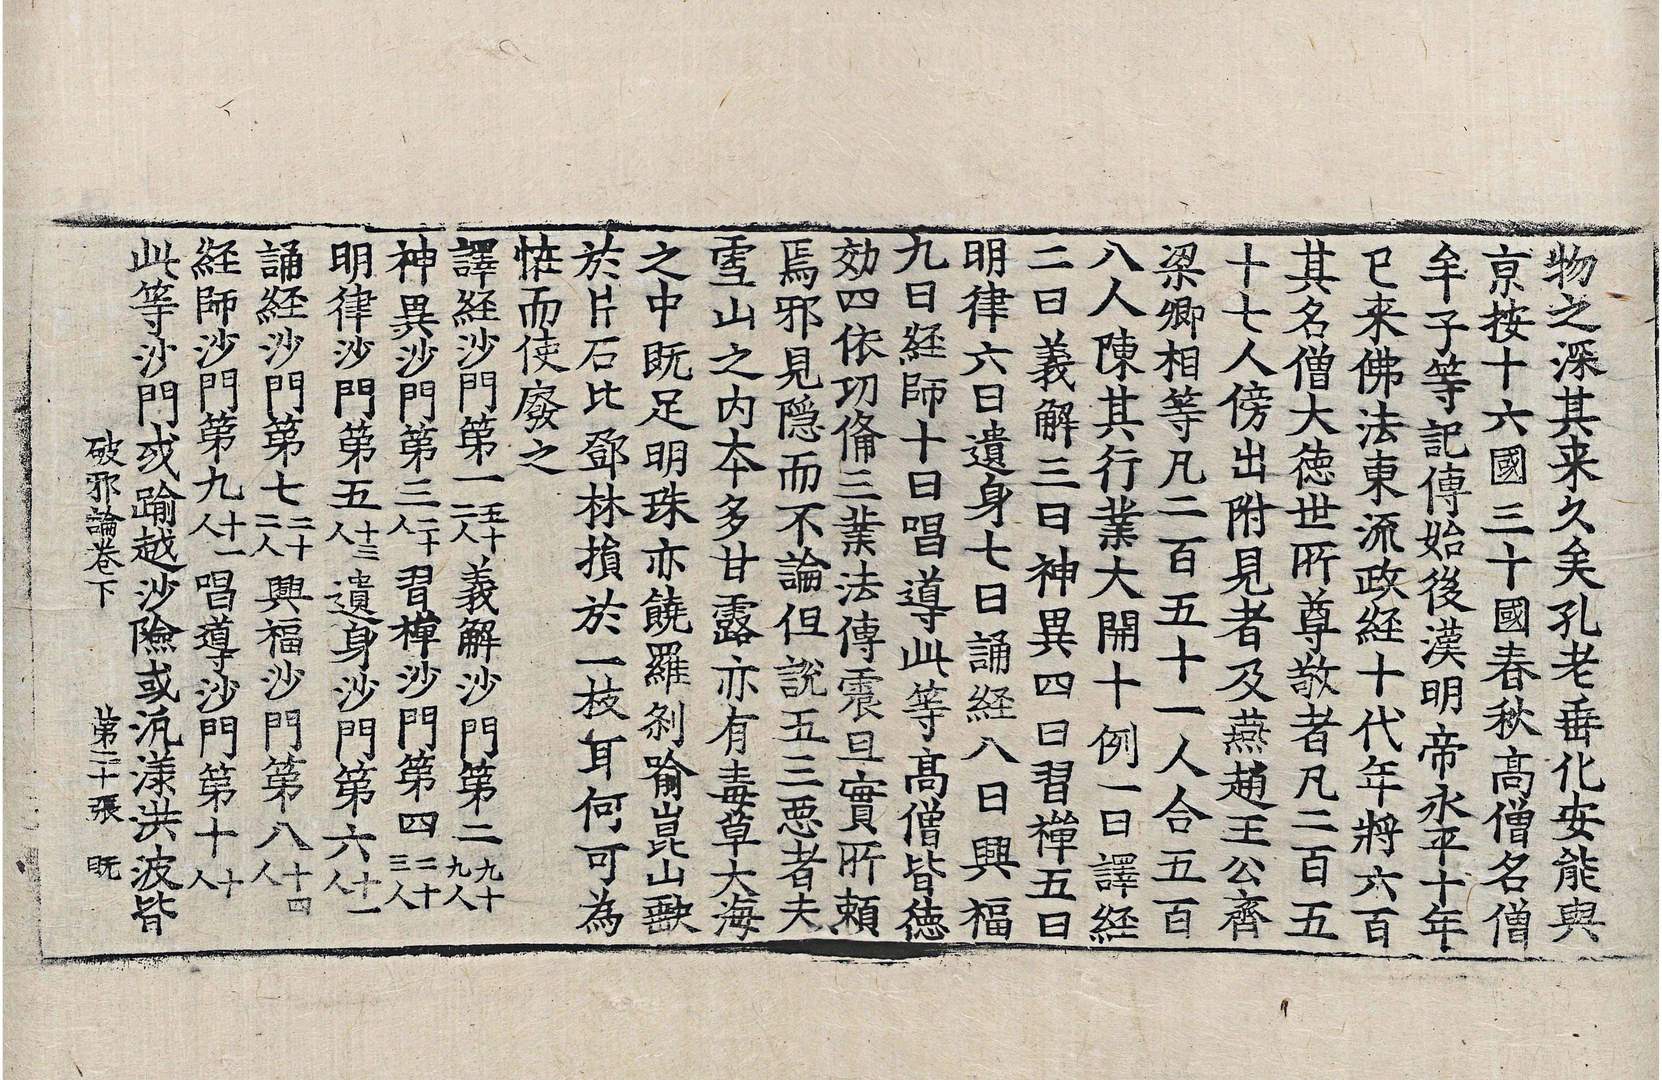 物之深其来久矣孔老垂化安能與
京按十六國三十國春秋高僧名僧
牟子等記傳始後漢明帝永平十年
已来佛法東流政経十代年將六百
其名僧大德世所尊敬者凡二百五
十七人傍出附見者及燕趙王公齊
梁卿相等凡二百五十一人合五百
八人陳其行業大開十例一曰譯経
二曰義解三曰神異四曰習禪五曰
明律六曰遺身七曰誦経八曰興福
九曰経師十曰唱導此等髙僧皆德
効四依功俻三業法傳震旦實所頼
焉邪見隱而不論但説五三惡者夫
雪山之内夲多甘露亦有毒草大海
之中既足明珠亦饒羅剎喻崑山𡙇
於片石比鄧林損於一枝耳何可為
恠而使廢之
譯経沙門第一五十二人義解沙門第二九十九人
神異沙門第三二十人習禪沙門第四二十三人
明律沙門第五十三人遺身沙門第六十一人
誦経沙門第七二十二人興福沙門第八十四人
経師沙門第九十一人唱導沙門第十十人
此等沙門或踰越沙險或汎漾洪波皆
破邪論卷下 第二十張 旣